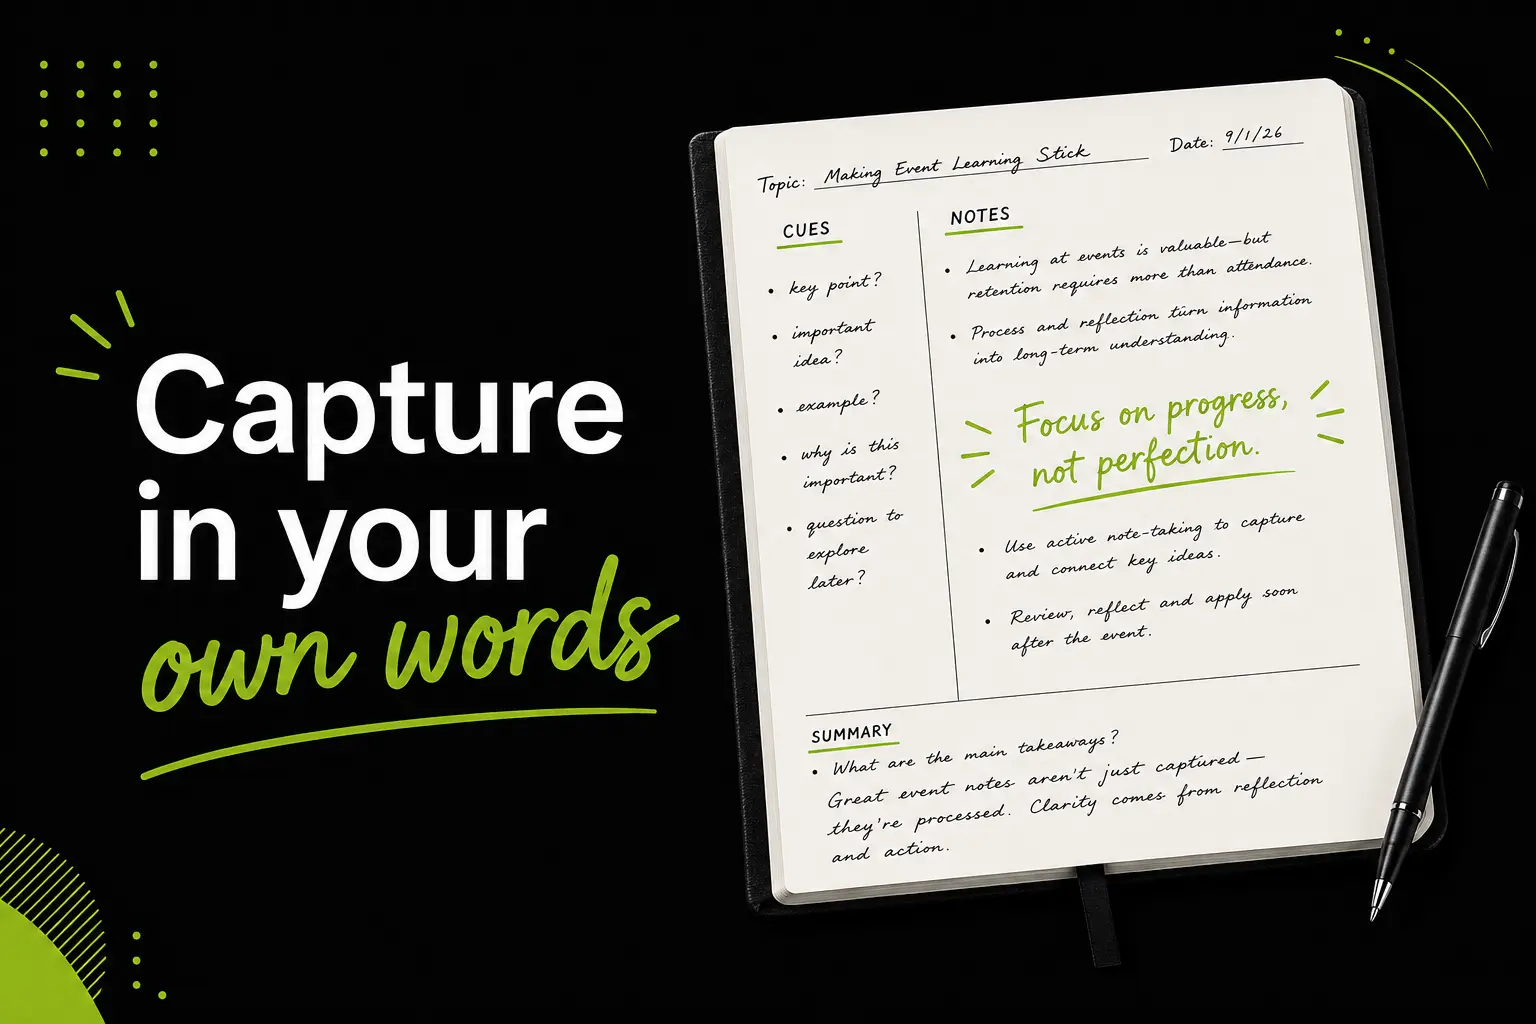 Capture
in your
own words
Topic: Making Event Learning Stick
Date: 9/1/26
CUES
• key point?
• important
idea?
• example?
• why is this
important?
• question to
explore
later?
NOTES
• Learning at events is valuable—but
retention requires more than attendance.
• Process and reflection turn information
into long-term understanding.
Focus on progress,
not perfection.
• Use active note-taking to capture
and connect key ideas.
• Review, reflect and apply soon
after the event.
SUMMARY
• What are the main takeaways?
Great event notes aren't just captured—
they're processed. Clarity comes from reflection
and action.